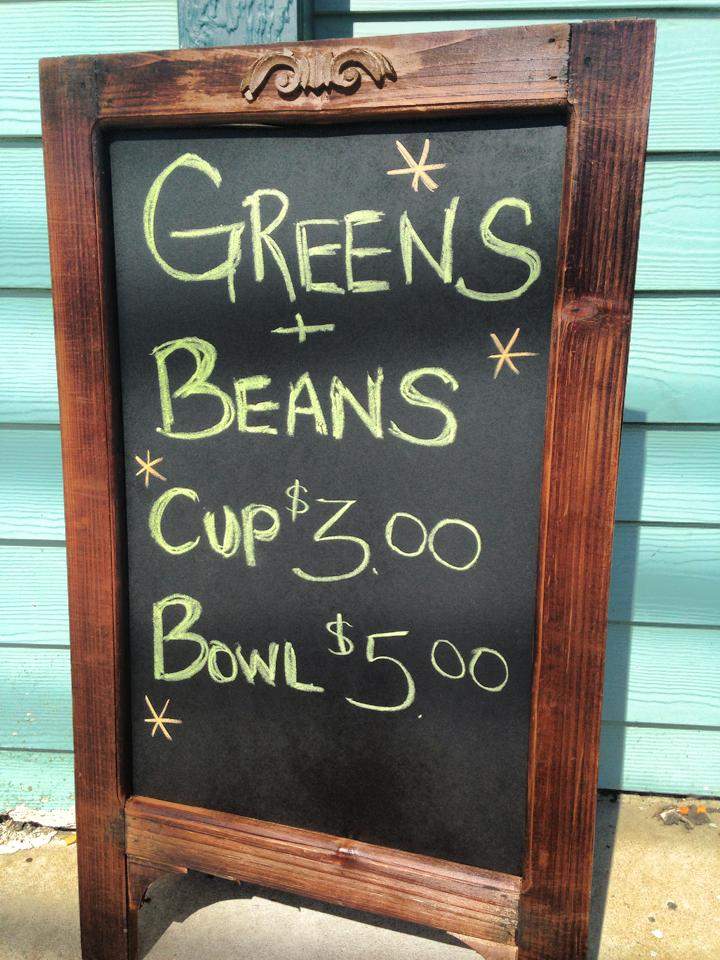 GREENS
+
BEANS
CUP $3.00
BOWL $5.00